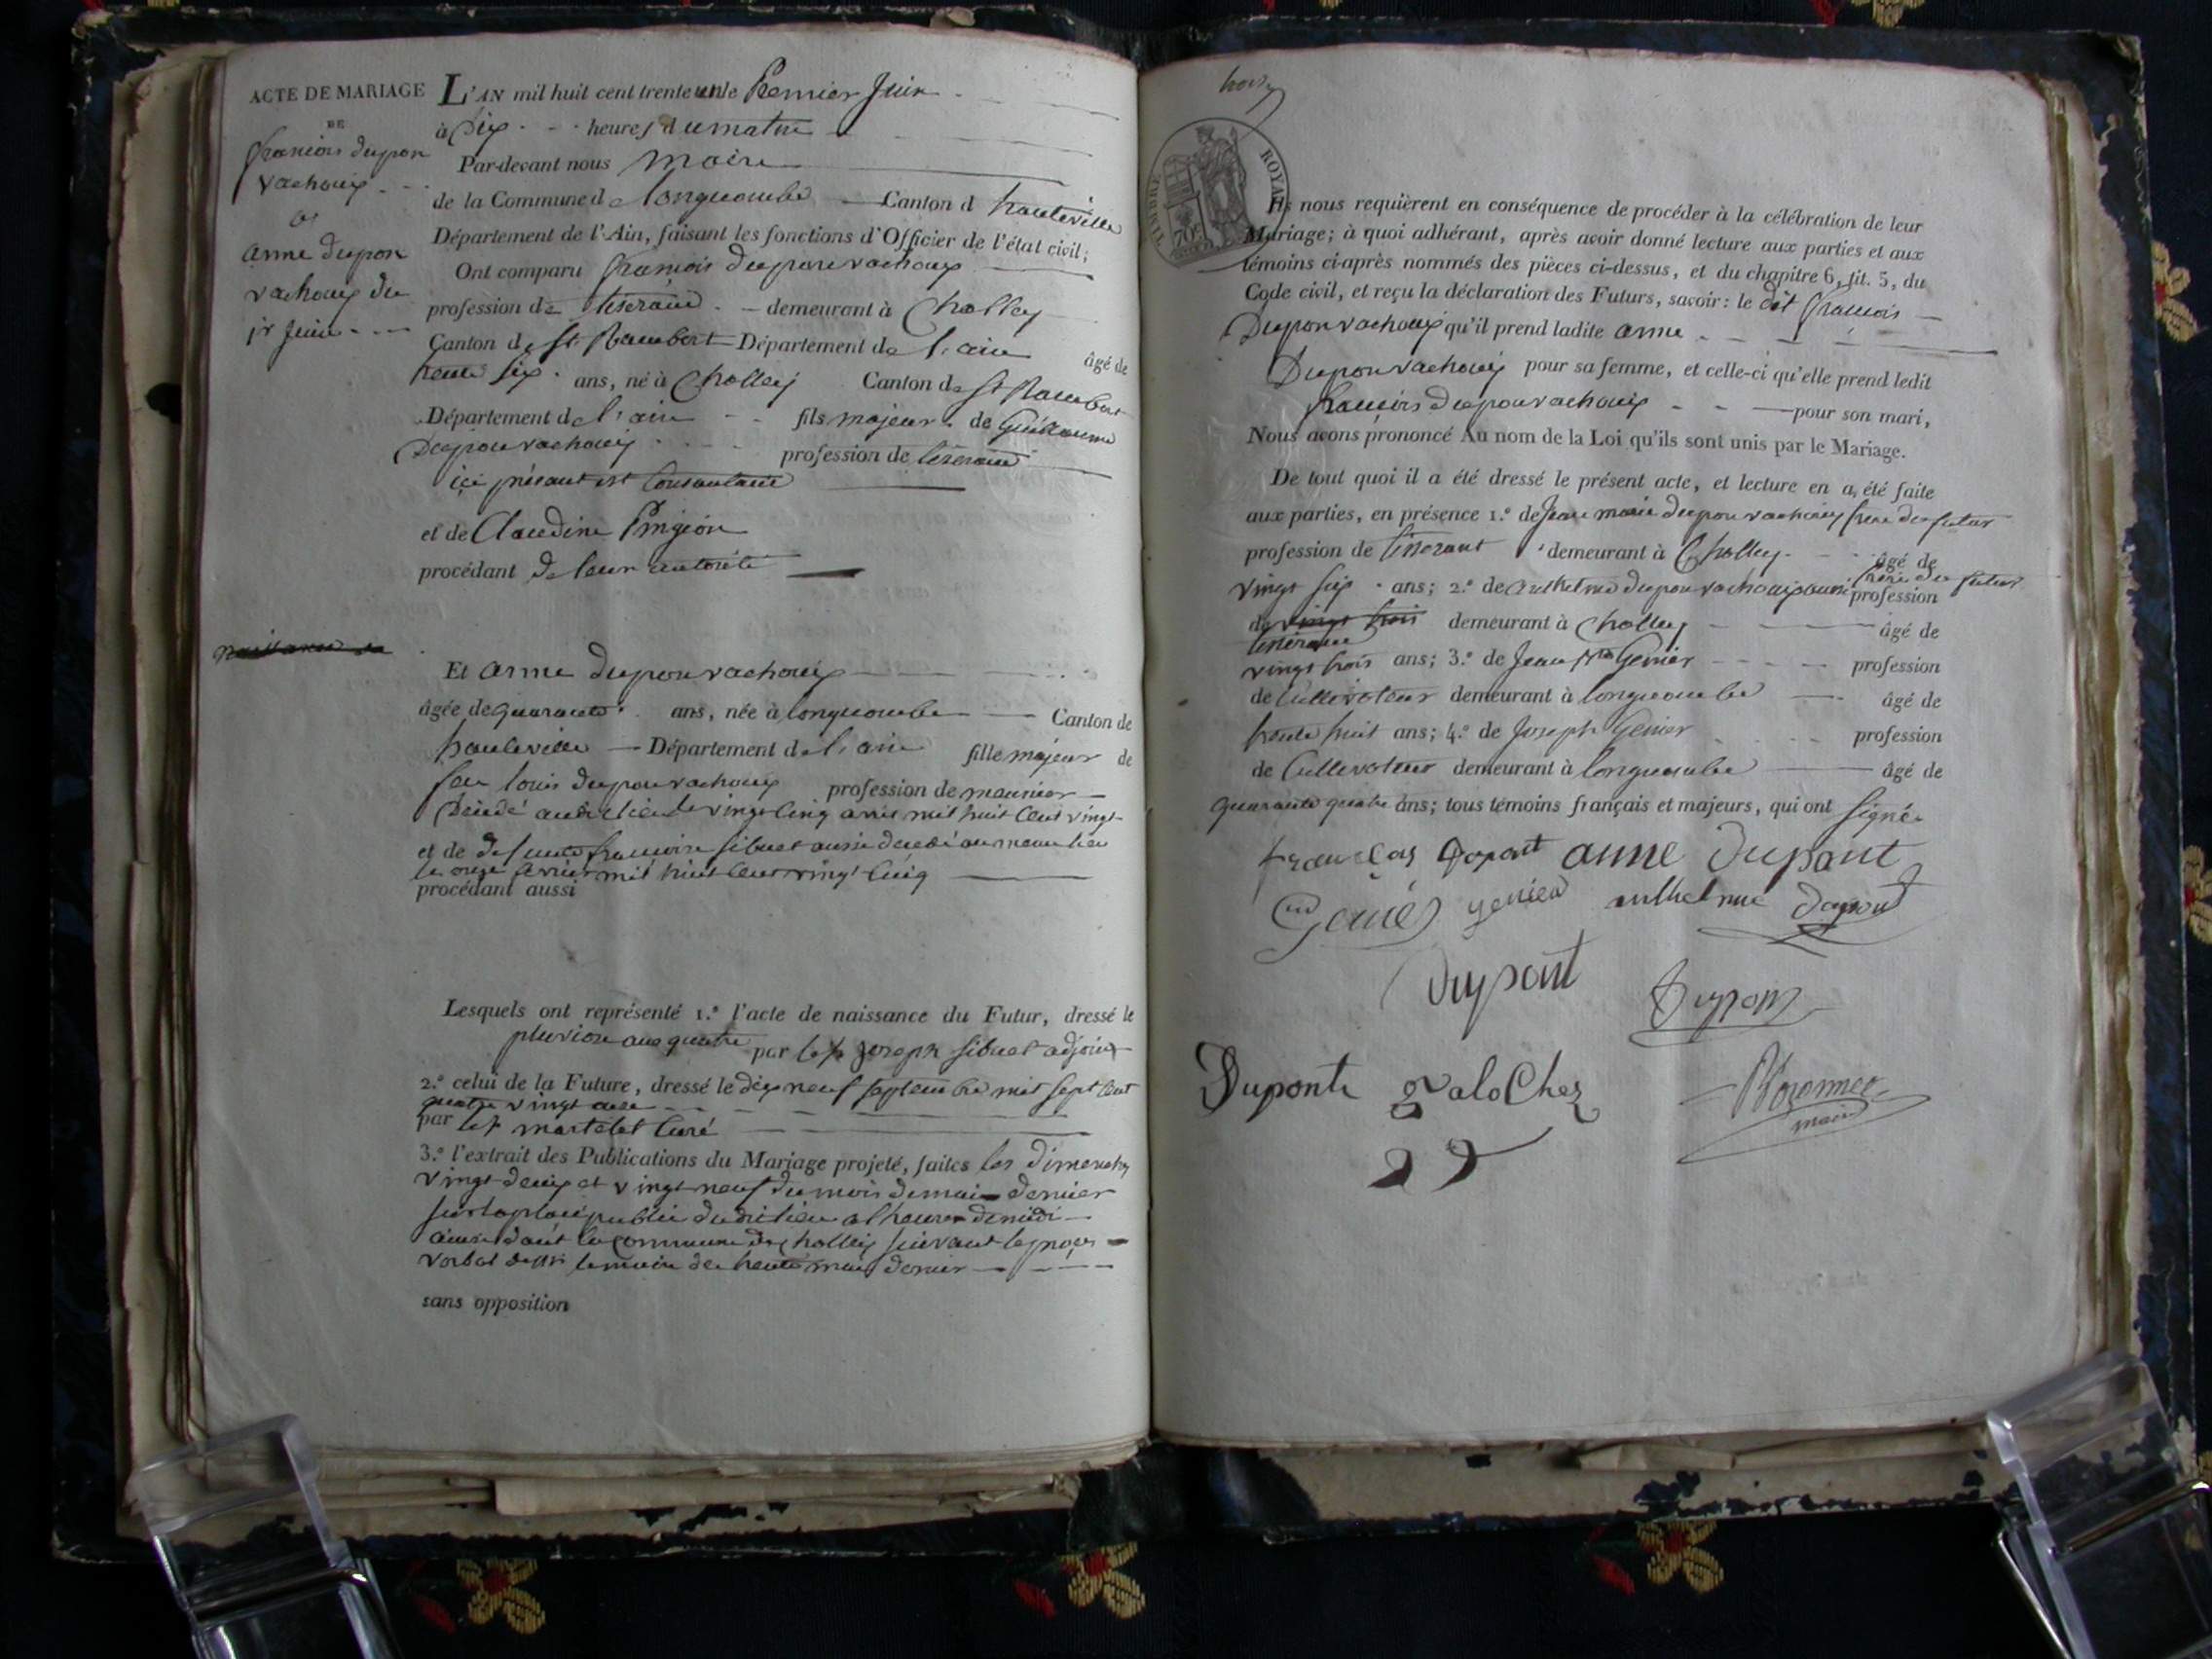 ACTE DE MARIAGE
DE
francois dupon
vachoux
et
anne dupon
vachoux du
1r juin
L'AN mil huit cent trente un le Premier Juin
à Six heures du matin
Par-devant nous maire
de la Commune de longecombe Canton d hauteville
Département de l'Ain, faisant les fonctions d'Officier de l'état civil;
Ont comparu francois dupon vachoux
profession de tiserand demeurant à Cholley
Canton de St Rambert Département de l'ain âgé de
trente six ans, né à Cholley Canton de St Rambert
Département de l'ain fils majeur de Guillaume
Dupon vachoux profession de tiserand
ici présant et Consantant
et de Claudine Pingeon
procédant de leur autorité
naissance
Et anne dupon vachoux
âgée de quarante ans, née à longecombe Canton de
hauteville Département de l'ain fille majeur de
feu louis dupon vachoux profession de meunier
Décédé audit lieu le vingt cinq mil huit cent vingt
et de defunte francoise sibuet aussi décédé au meme lieu
le onze mil huit cent vingt cinq
procédant aussi
Lesquels ont représenté 1.º l'acte de naissance du Futur, dressé le
pluviose an quatre par joseph sibuet adjoint
2.º celui de la Future, dressé le dix neuf septembre mil sept cent
quatre vingt
par martelet Curé
3.º l'extrait des Publications du Mariage projeté, faites les dimenches
vingt deux et vingt neuf du mois de mai dernier
sur la place publie dudit lieu a l'heure de midi
ainsi dant la commune de cholley suivant le proces
verbal de Mr le maire de trente mai dernier
sans opposition
TIMBRE ROYAL
70c
Ils nous requièrent en conséquence de procéder à la célébration de leur
Mariage; à quoi adhérant, après avoir donné lecture aux parties et aux
témoins ci-après nommés des pièces ci-dessus, et du chapitre 6, tit. 5, du
Code civil, et reçu la déclaration des Futurs, savoir: le dit francois
Dupon vachoux qu'il prend ladite anne
Dupon vachoux pour sa femme, et celle-ci qu'elle prend ledit
francois dupon vachoux pour son mari,
Nous avons prononcé Au nom de la Loi qu'ils sont unis par le Mariage.
De tout quoi il a été dressé le présent acte, et lecture en a été faite
aux parties, en présence 1.º de Jean marie dupon vachoux frere du futur
profession de tisserant demeurant à Cholley âgé de
vingt six ans; 2.º de anthelme dupon vachoux aussi frere du futur profession
de vingt trois demeurant à Cholley âgé de
tisserand
vingt trois ans; 3.º de Jean Genier profession
de Cultivateur demeurant à longecombe âgé de
trente huit ans; 4.º de Joseph Genier profession
de Cultivateur demeurant à longecombe âgé de
quarante quatre ans; tous témoins français et majeurs, qui ont signé
françois Dopont anne Dupont
Genier genier anthelme Dupont
Dupont Dupont
Duponte galoChez
maire